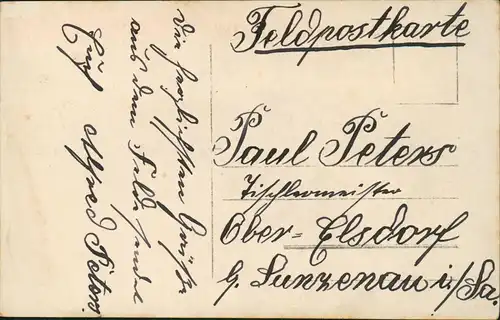 Feldpostkarte
Paul Peters
Tischlermeister
Ober-Elsdorf
b. Lunzenau i/Sa.
Die herzlichsten Grüße
aus dem Felde sendet
Euch Alfred Peters.